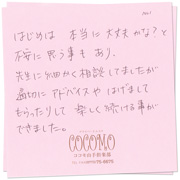 No.1
はじめは 本当に大丈夫かな？と
不安に思う事もあり、
先生に細かく相談してましたが
適切にアドバイスやはげまして
もらったりして 楽しく続ける事が
できました。
COCOMO
ココモ山手倶楽部